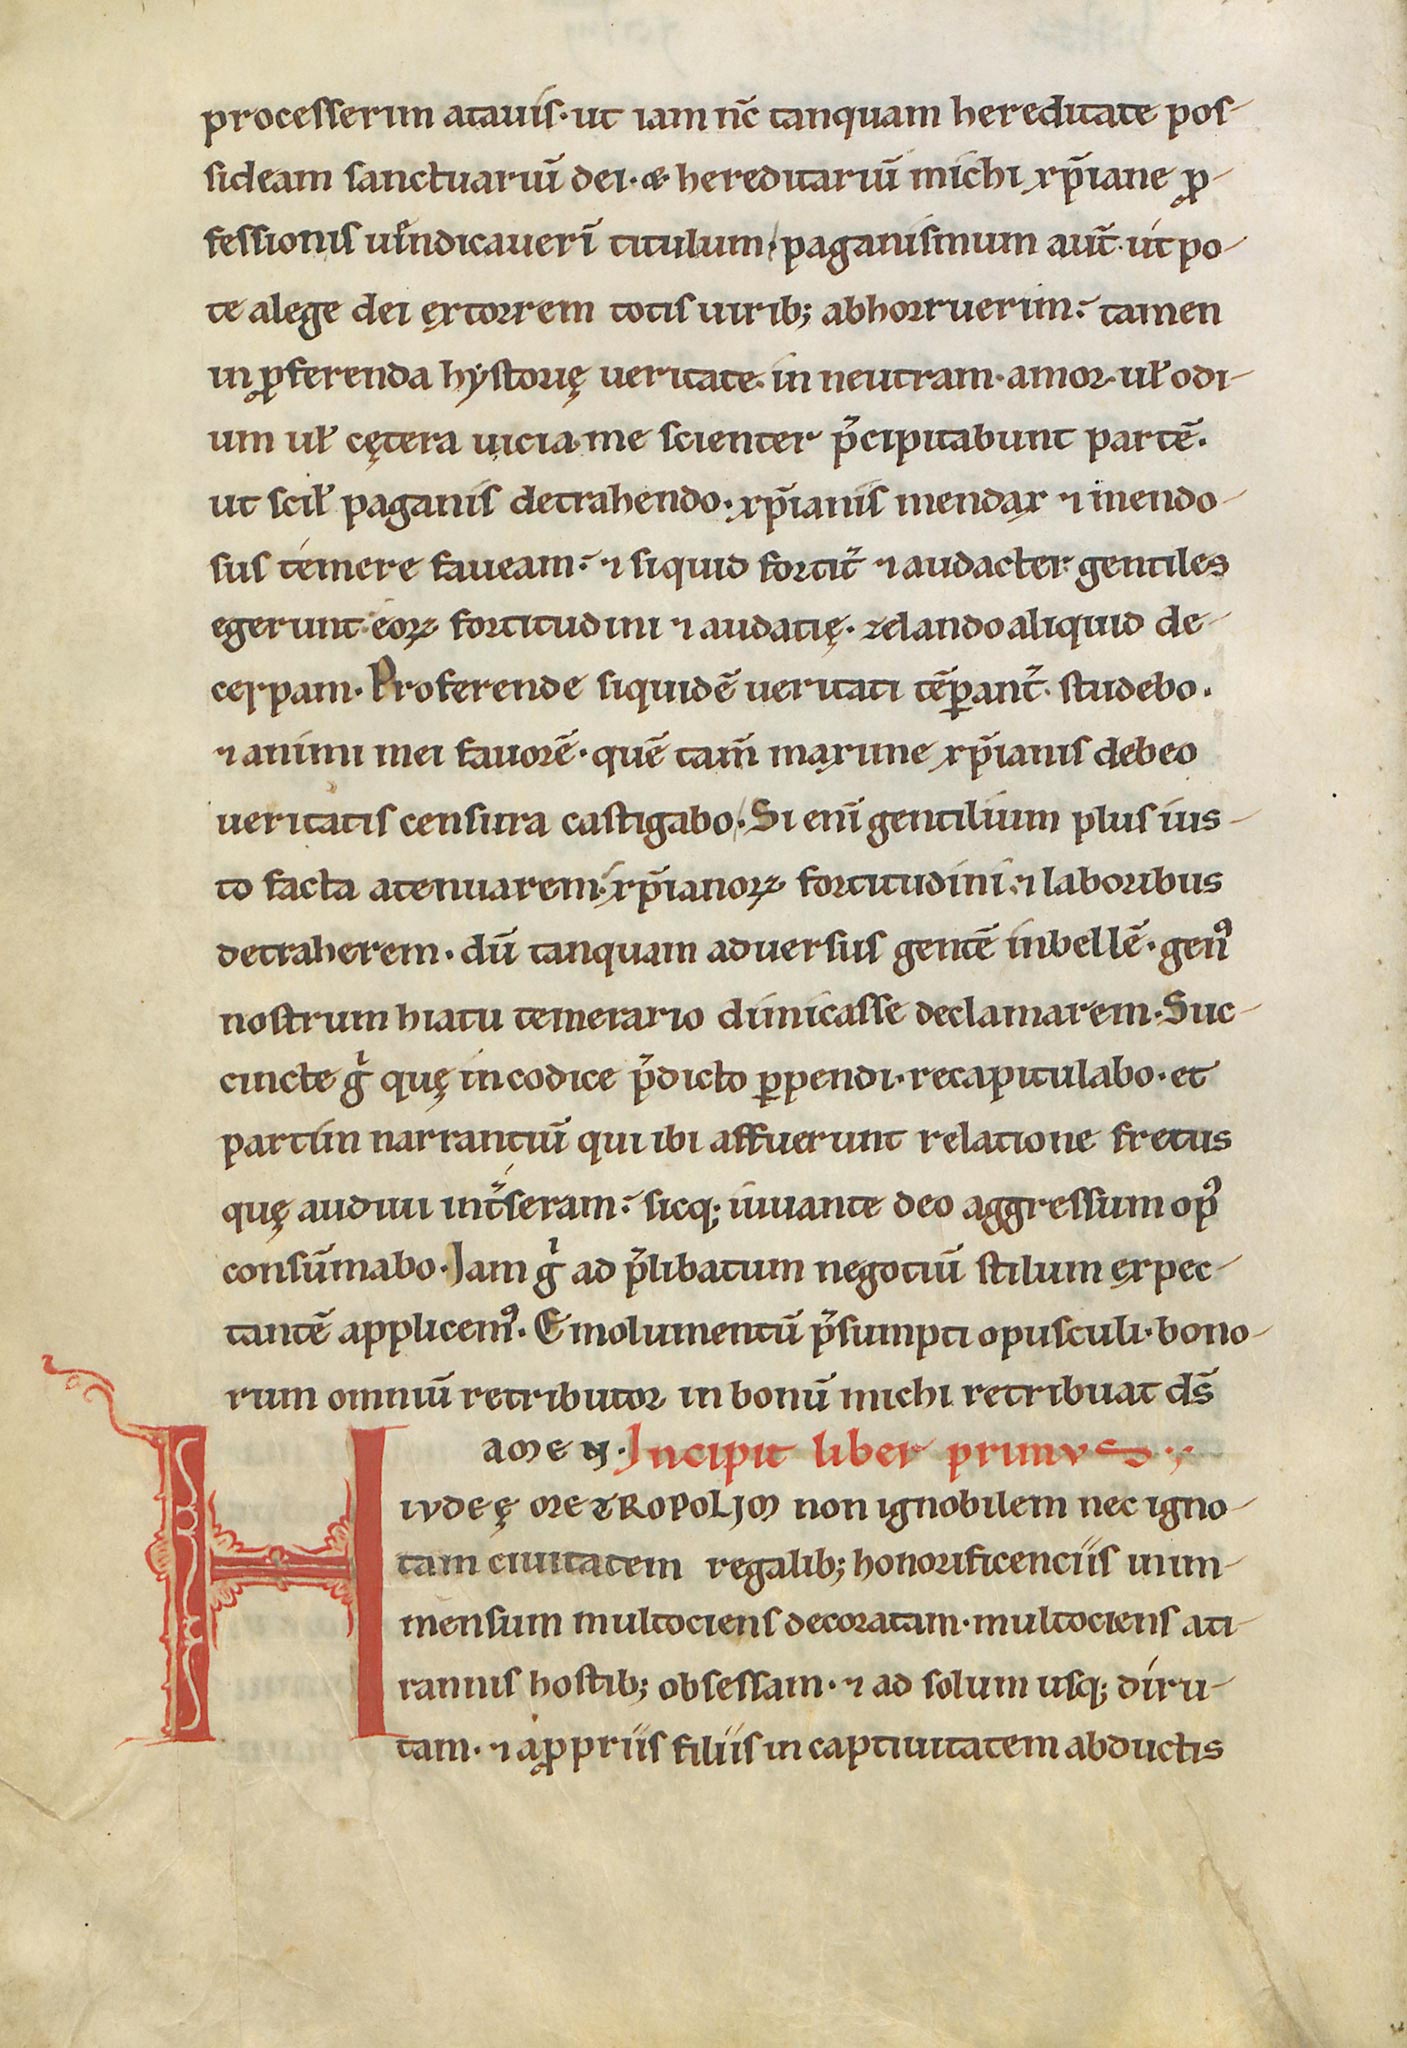 processerim atauis· ut iam nc̄ tanquam hereditate pos-
sideam sanctuariū dei· & hereditariū michi xp̄iane ꝓ-
fessionis uindicauerī titulum· paganismum aut̄· ut po-
te alege dei extorrem totis uirib; abhorruerim· tamen
in ꝓferenda hystorię ueritate· in neutram· amor· uł odi-
um uł cętera uicia· me scienter p̄cipitabunt partē·
ut scił paganis detrahendo· xp̄ianis mendax ⁊ mendo-
sus temere faueam· ⁊ siquid fortit̄ ⁊ audacter gentiles
egerunt· eoꝝ fortitudini ⁊ audatię· zelando aliquid de-
cerpam· Proferende siquidē ueritati tēꝑant̄· studebo·
⁊ animi mei fauorē· quē tam̄ maxime xp̄ianis debeo
ueritatis censura castigabo· Si enī gentilium plus ius-
to facta atenuarem· xp̄ianoꝝ fortitudini· ⁊ laboribus
detraherem· dū tanquam aduersus gentē inbellē· genꝰ
nostrum hiatu temerario dimicasse declamarem· Suc-
cincte gͥ quę in codice p̄dicto ꝑpendi· recapitulabo· et
partim narrantiū qui ibi affuerunt relatione fretus
quę audiui int̄seram· sicq; iuuante deo aggressum opꝰ
consūmabo· Iam gͥ ad p̄libatum negotiū stilum expec-
tantē applicemꝰ· Emolumentū p̄sumpti opusculi· bono-
rum omniū retributor in bonū michi retribuat ds̄
AMEN· Incipit liber primus
HIUDEĘ METROPOLIM non ignobilem nec igno-
tam ciuitatem regalib; honorificenciis inim-
mensum multociens decoratam· multociens ati-
rannis hostib; obsessam· ⁊ ad solum usq; diru-
tam· ⁊ aꝓpriis filiis in captiuitatem abductis